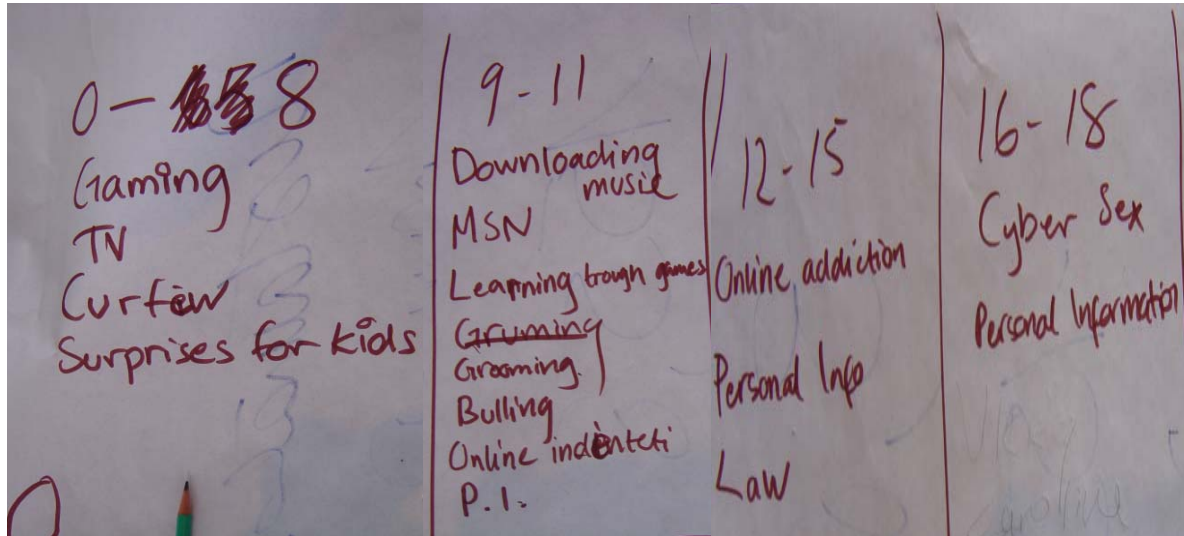 0 - 8
Gaming
TV
Curfew
Surprises for kids
9 - 11
Downloading
music
MSN
Learning trough games
Gruming
Grooming.
Bulling
Online indenteti
P.I.
12 - 15
Online addiction
Personal Info
Law
16 - 18
Cyber Sex
Personal Information